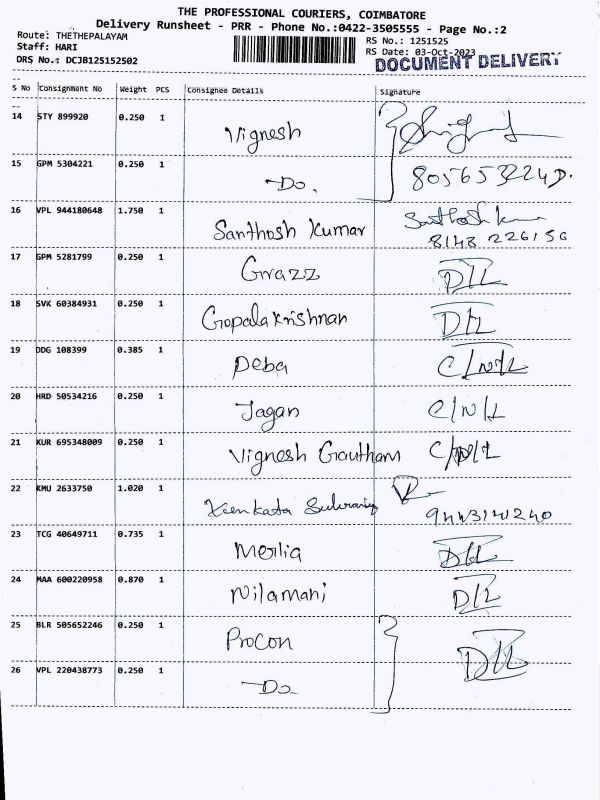 THE PROFESSIONAL COURIERS, COIMBATORE
Delivery Runsheet - PRR - Phone No.:0422-3505555 - Page No.:2
Route: THETHEPALAYAM
RS No.: 1251525
Staff: HARI
RS Date: 03-Oct-2023
DRS No.: DCJB125152502
DOCUMENT DELIVERY
S No Consignment No Weight PCS Consignee Details Signature
14 STY 899920 0.250 1 Vignesh
15 GPM 5304221 0.250 1 -Do.
16 VPL 944180648 1.750 1 Santhosh Kumar Santhosh Kum
8148 226156
17 GPM 5281799 0.250 1 Grazz D/L
18 SVK 60384931 0.250 1 Gopalakrishnan D/L
19 DDG 108399 0.385 1 Deba C/N/L
20 HRD 50534216 0.250 1 Jagan C/N/L
21 KUR 695348009 0.250 1 Vignesh Gautham C/N/L
22 KMU 2633750 1.020 1 Venkata 9443141240
23 TCG 40649711 0.735 1 Merlia D/L
24 MAA 600220958 0.870 1 Nilamani D/L
25 BLR 505652246 0.250 1 Procon D/L
26 VPL 220438773 0.250 1 -Do